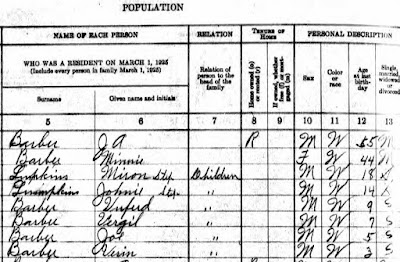 POPULATION
NAME OF EACH PERSON RELATION TENURE OF HOME PERSONAL DESCRIPTION
WHO WAS A RESIDENT ON MARCH 1, 1925
(Include every person in family March 1, 1925)
Relation of person to the head of the family
Home owned (o) or rented (r)
If owned, whether free (f) or mortgaged (m)
Sex
Color or race
Age at last birthday
Single, married, widowed or divorced
Surname Given names and initials
5 6 7 8 9 10 11 12 13
Barber J A R M W 55 M
Barber Minnie F W 44 M
Lupkins Miron Step Children M W 18 S
Lumpkins Johnie Step. " M W 14 S
Barber " M W 9 S
Barber Vergil " M W 7 S
Barber Joe " M W 5 S
Barber " M W S